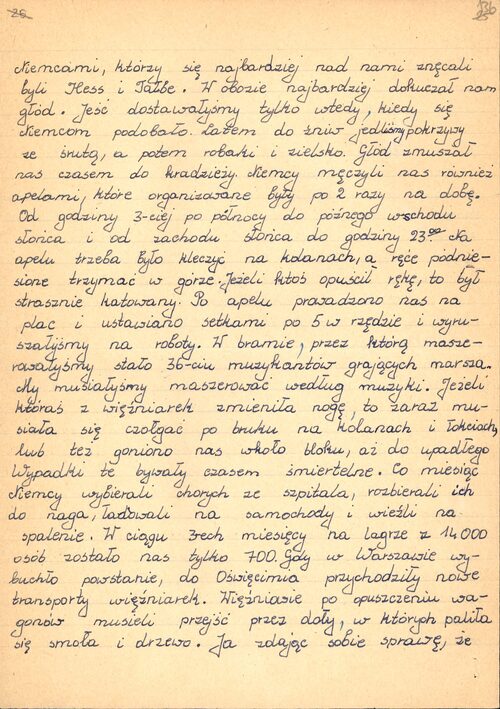 26
136
25
Niemcami, którzy się najbardziej nad nami znęcali
byli Hess i Taube. W obozie najbardziej dokuczał nam
głód. Jeść dostawałyśmy tylko wtedy, kiedy się
Niemcom podobało. Latem do żniw jedliśmy pokrzywy
ze śrutą, a potem robaki i zielsko. Głód zmuszał
nas czasem do kradzieży. Niemcy męczyli nas również
apelami, które organizowane były po 2 razy na dobę.
Od godziny 3-ciej po północy do późnego wschodu
słońca i od zachodu słońca do godziny 23⁰⁰. Na
apelu trzeba było klęczyć na kolanach, a ręce podnie-
sione trzymać w górze. Jeżeli ktoś opuścił rękę, to był
strasznie katowany. Po apelu prowadzono nas na
plac i ustawiano setkami po 5 w rzędzie i wyru-
szałyśmy na roboty. W bramie, przez którą masze-
rowałyśmy stało 36-ciu muzykantów grających marsza.
My musiałyśmy maszerować według muzyki. Jeżeli
któraś z więźniarek zmieniła nogę, to zaraz mu-
siała się czołgać po bruku na kolanach i łokciach,
lub też goniono nas wkoło bloku, aż do upadłego
Wypadki te bywały czasem śmiertelne. Co miesiąc
Niemcy wybierali chorych ze szpitala, rozbierali ich
do naga, ładowali na samochody i wieźli na
spalenie. W ciągu 3ech miesięcy na lagrze z 14000
osób zostało nas tylko 700. Gdy w Warszawie wy-
buchło powstanie, do Oświęcimia przychodziły nowe
transporty więźniarek. Więźniowie po opuszczeniu wa-
gonów musieli przejść przez doły, w których paliła
się smoła i drzewo. Ja zdając sobie sprawę, że